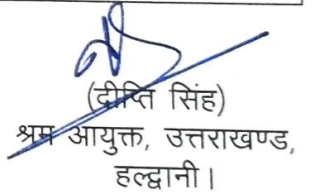 (दीप्ति सिंह)
श्रम आयुक्त, उत्तराखण्ड,
हल्द्वानी।